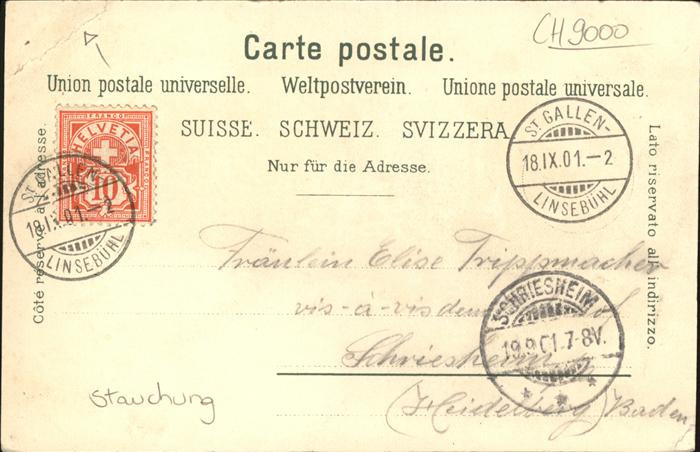 CH9000
Carte postale.
Union postale universelle. Weltpostverein. Unione postale universale.
SUISSE. SCHWEIZ. SVIZZERA
Nur für die Adresse.
Côté réservé à l'adresse.
Lato riservato all'indirizzo.
FRANCO
HELVETIA
10
ST. GALLEN-
18.IX.01.-2
LINSEBÜHL
ST. GALLEN-
18.IX.01.-2
LINSEBÜHL
Fräulein Elise Trippmacher
vis-à-vis dem
Schriesheim
(Heidelberg) Baden
SCHRIESHEIM
19.9.01.7-8V.
Stauchung